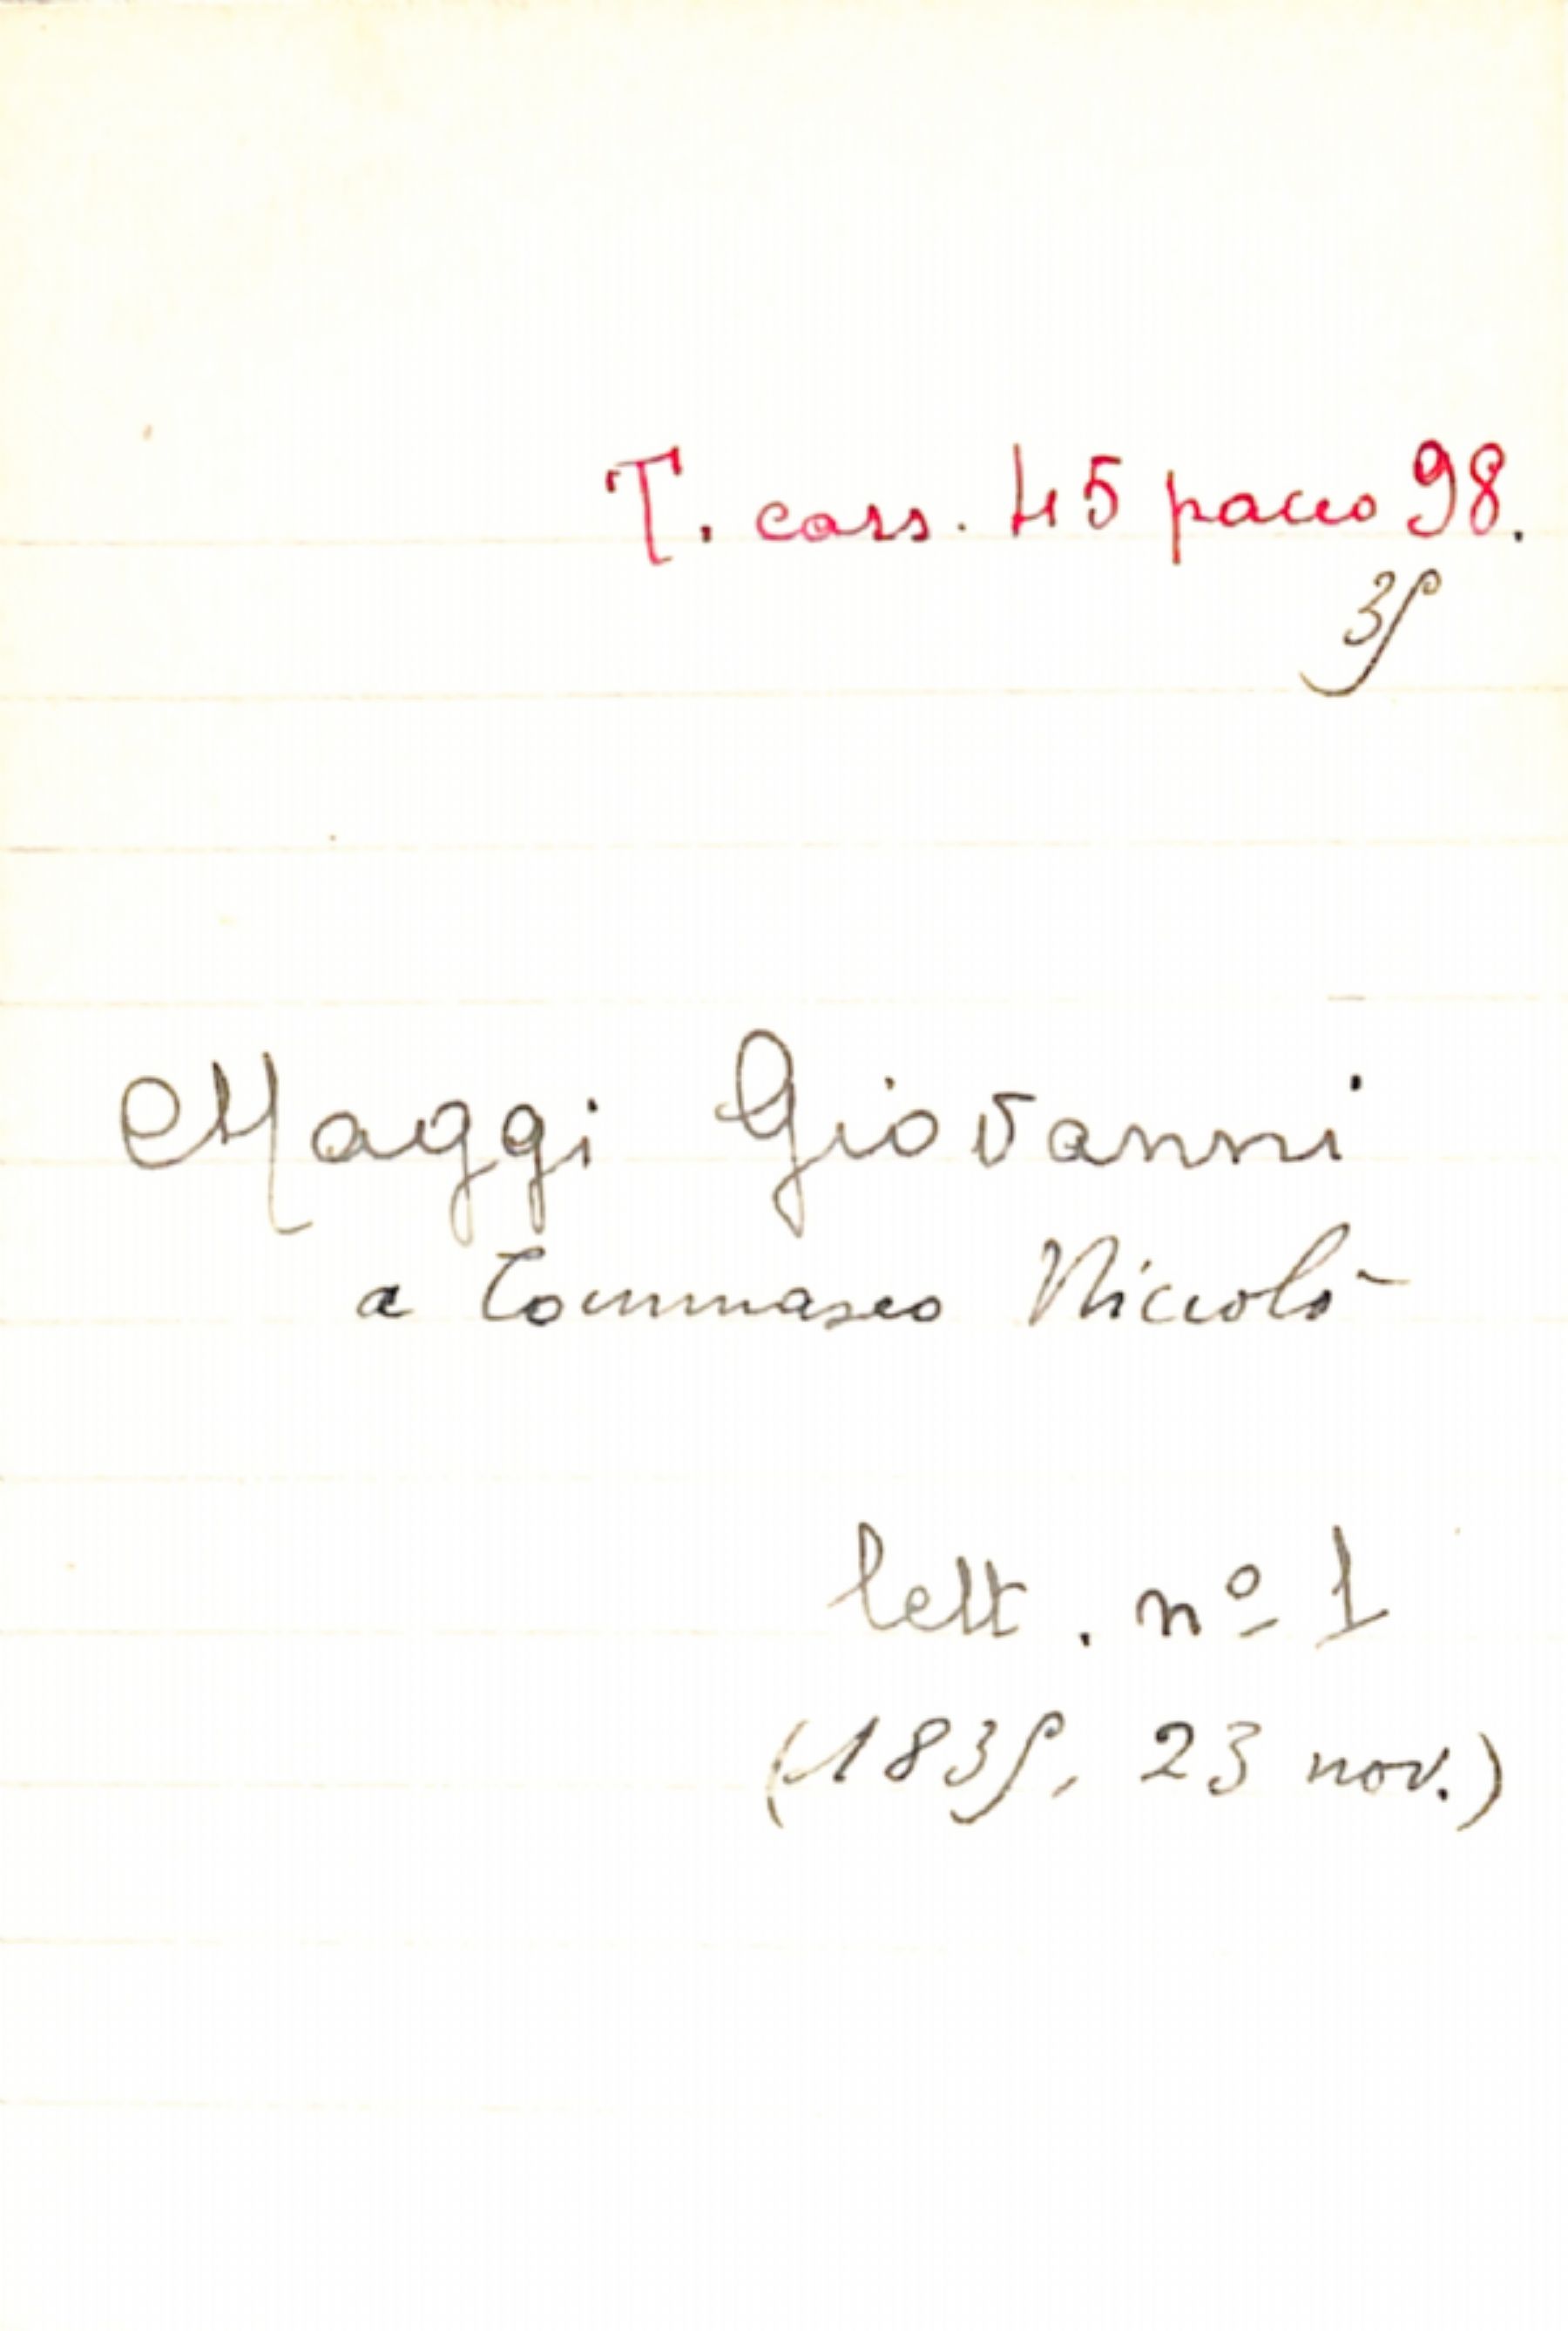 T. cass. 45 pacco 98.
35
Maggi Giovanni
a Tommaseo Niccolò
lett. nº 1
(1835, 23 nov.)